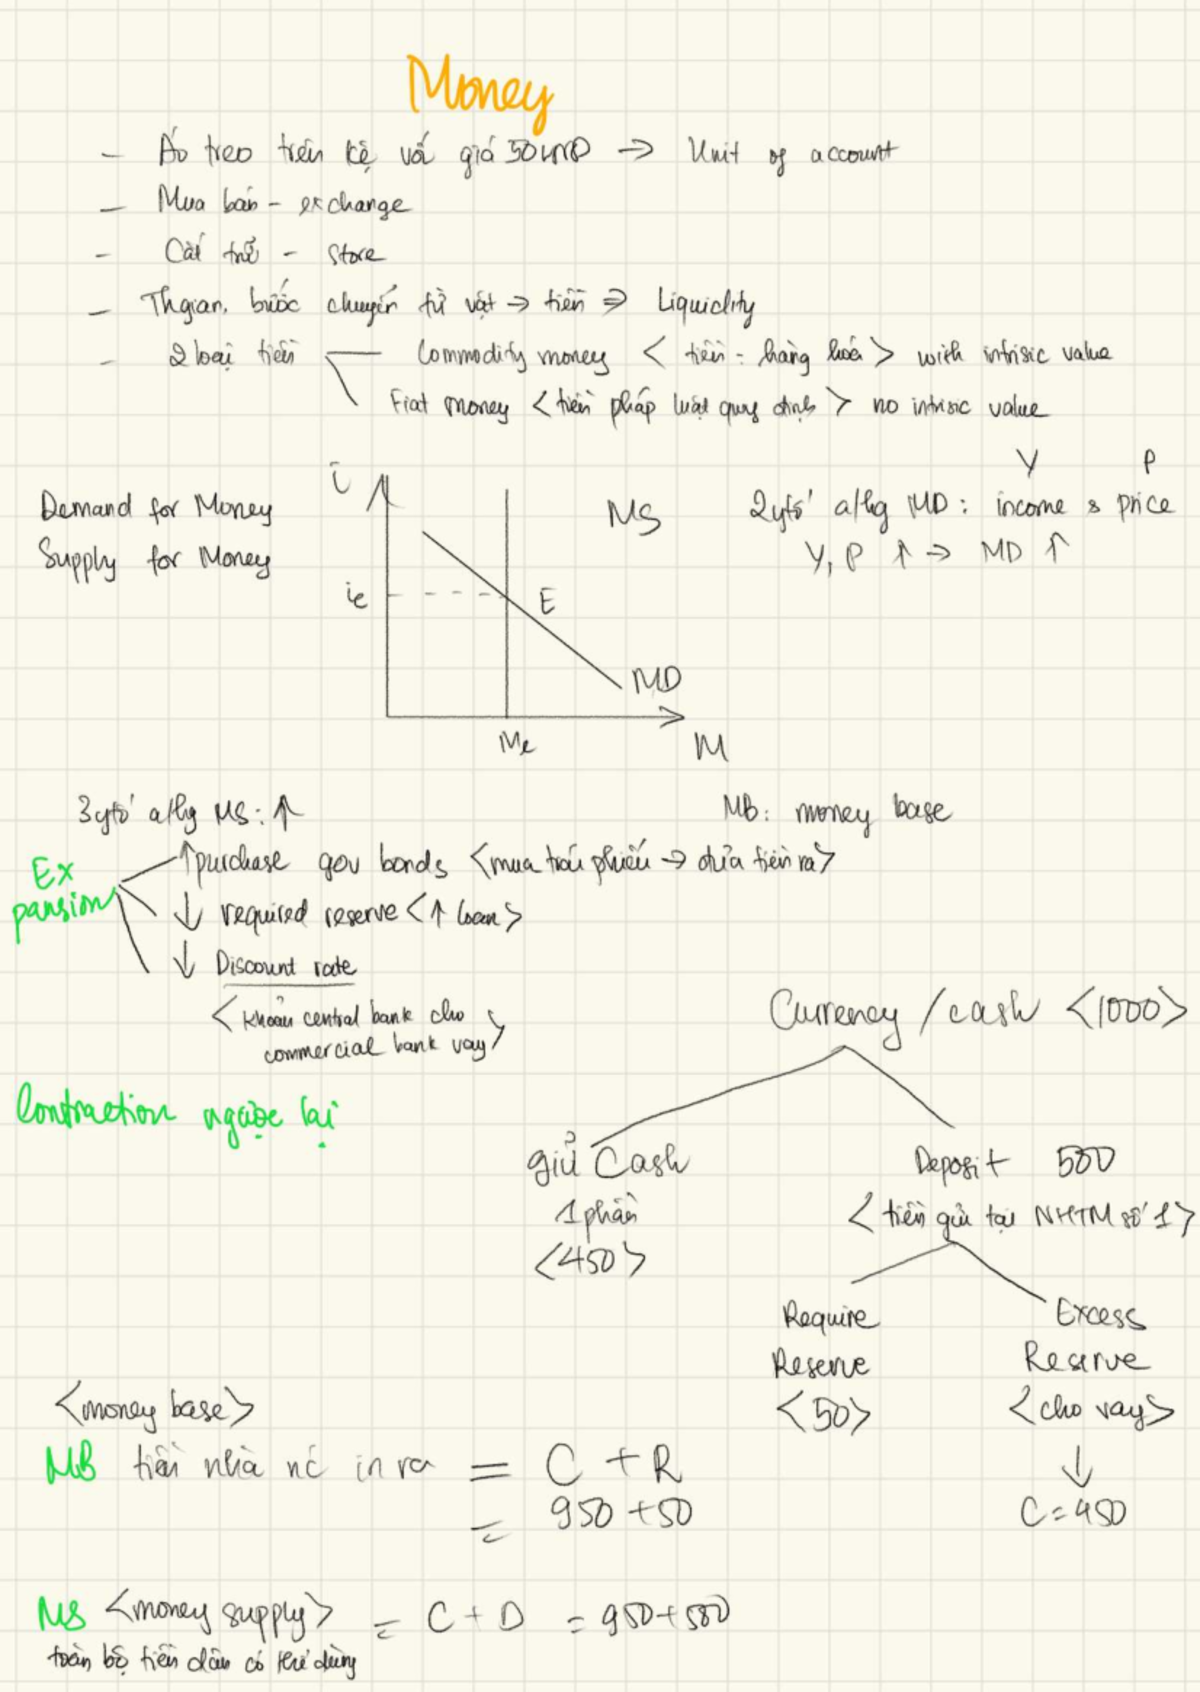 Money
- Áo treo trên kệ với giá 50 VND → Unit of account
- Mua bán - exchange
- Cất trữ - store
- Thgian, bước chuyển từ vật → tiền ⇒ Liquidity
- 2 loại tiền — Commodity money < tiền = hàng hoá > with intrisic value
Fiat money < tiền pháp luật quy định > no intrisic value
Y P
Demand for Money
Supply for Money
i
MS
ie
E
MD
Me
M
2 ytố a/hg MD: income & price
Y, P ↑ → MD ↑
3 ytố a/hg MS: ↑
MB: money base
Ex
pansion
↑ purchase gov bonds < mua trái phiếu → đưa tiền ra >
↓ required reserve < ↑ loan >
↓ Discount rate
< khoản central bank cho
commercial bank vay >
Contraction ngược lại
Currency / cash <1000>
giữ Cash
1 phần
<450>
Deposit 500
< tiền gửi tại NHTM số 1 >
Require
Reserve
<50>
Excess
Reserve
<cho vay>
↓
C = 450
<money base>
MB tiền nhà nc in ra = C + R
= 950 + 50
MS <money supply> = C + D = 950 + 500
toàn bộ tiền dân có thể dùng